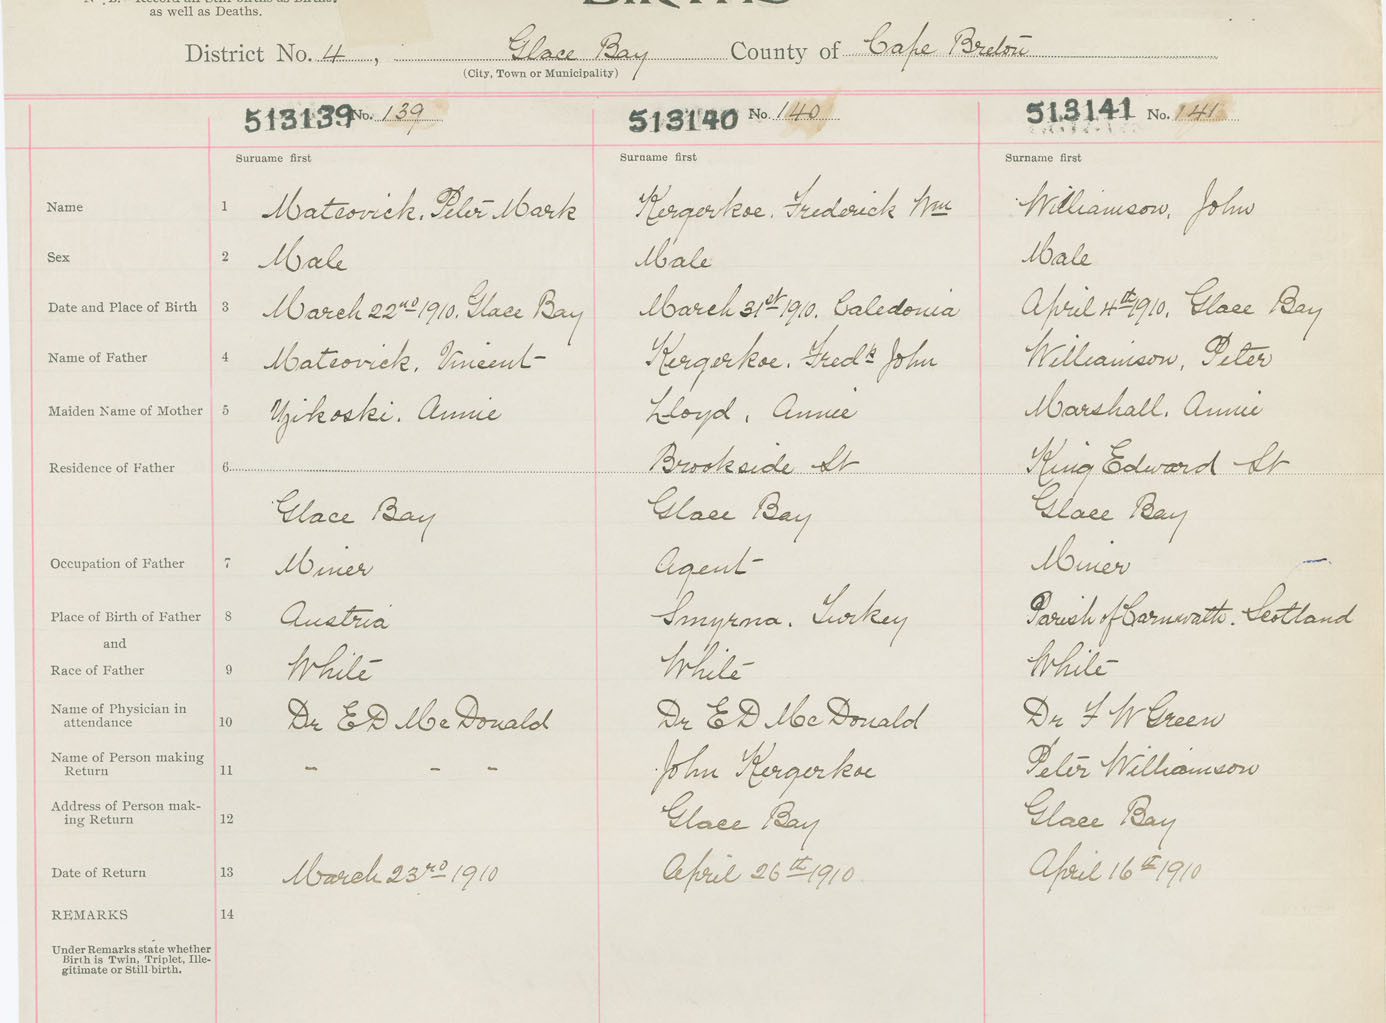 as well as Deaths.
BIRTHS
District No. 4, Glace Bay County of Cape Breton
(City, Town or Municipality)
513139 No. 139 513140 No. 140 513141 No. 141
Surname first Surname first Surname first
Name 1 Matsovick, Peter Mark Kergerkoe, Frederick Wm Williamson, John
Sex 2 Male Male Male
Date and Place of Birth 3 March 22nd 1910, Glace Bay March 31st 1910, Caledonia April 4th 1910, Glace Bay
Name of Father 4 Matsovick, Vincent Kergerkoe, Fredk John Williamson, Peter
Maiden Name of Mother 5 Annie Lloyd, Annie Marshall, Annie
Residence of Father 6 Brookside St King Edward St
Glace Bay Glace Bay Glace Bay
Occupation of Father 7 Miner Agent Miner
Place of Birth of Father 8 Austria Smyrna, Turkey Parish of Carnwath, Scotland
and
Race of Father 9 White White White
Name of Physician in
attendance 10 Dr E D McDonald Dr E D McDonald Dr F W Green
Name of Person making
Return 11 - - - John Kergerkoe Peter Williamson
Address of Person mak-
ing Return 12 Glace Bay Glace Bay
Date of Return 13 March 23rd 1910 April 26th 1910 April 16th 1910
REMARKS 14
Under Remarks state whether
Birth is Twin, Triplet, Ille-
gitimate or Still-birth.